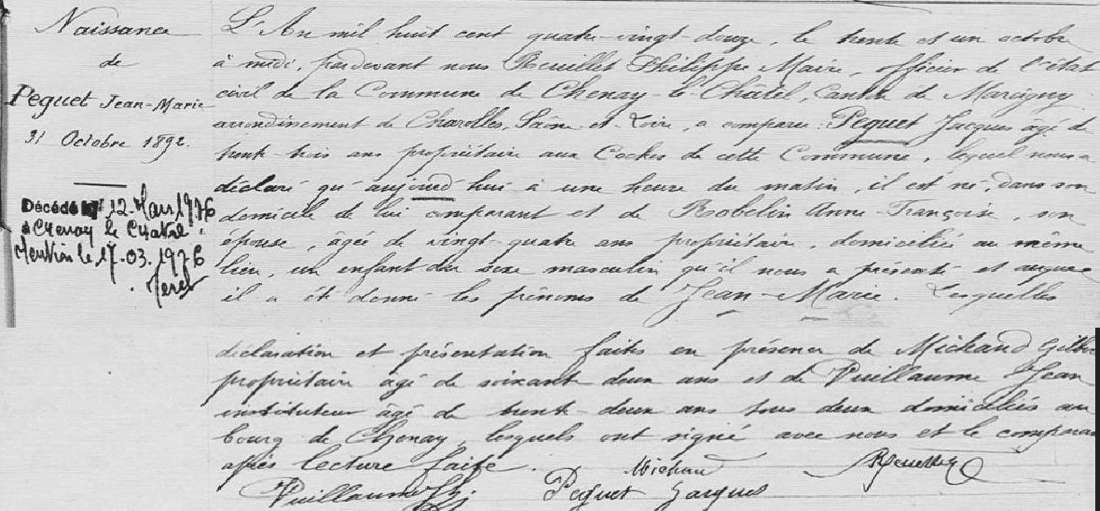 Naissance
de
Peguet Jean-Marie
31 Octobre 1892.
Décédé le 12 Mars 1976
à Chenay le Chatel.
Mention le 17.03.1976
L'An mil huit cent quatre-vingt douze, le trente et un octobre
à midi, pardevant nous Philippe Maire, officier de l'état
civil de la Commune de Chenay-le-Châtel, Canton de Marcigny
arrondissement de Charolles, Saône-et-Loire, a comparu Peguet Jacques âgé de
trente-trois ans propriétaire aux Coches de cette Commune, lequel nous a
déclaré qu'aujourd'hui à une heure du matin, il est né, dans son
domicile de lui comparant et de Robelin Anne-Françoise, son
épouse, âgée de vingt-quatre ans propriétaire, domiciliée au même
lieu, un enfant du sexe masculin qu'il nous a présenté et auquel
il a été donné les prénoms de Jean-Marie. Lesquelles
déclaration et présentation faites en présence de Michaud
propriétaire âgé de soixante deux ans et de Vuillaume Jean
instituteur âgé de trente-deux ans tous deux domiciliés au
bourg de Chenay, lesquels ont signé avec nous et le comparant
après lecture faite.
Michaud
Vuillaume Peguet Jacques